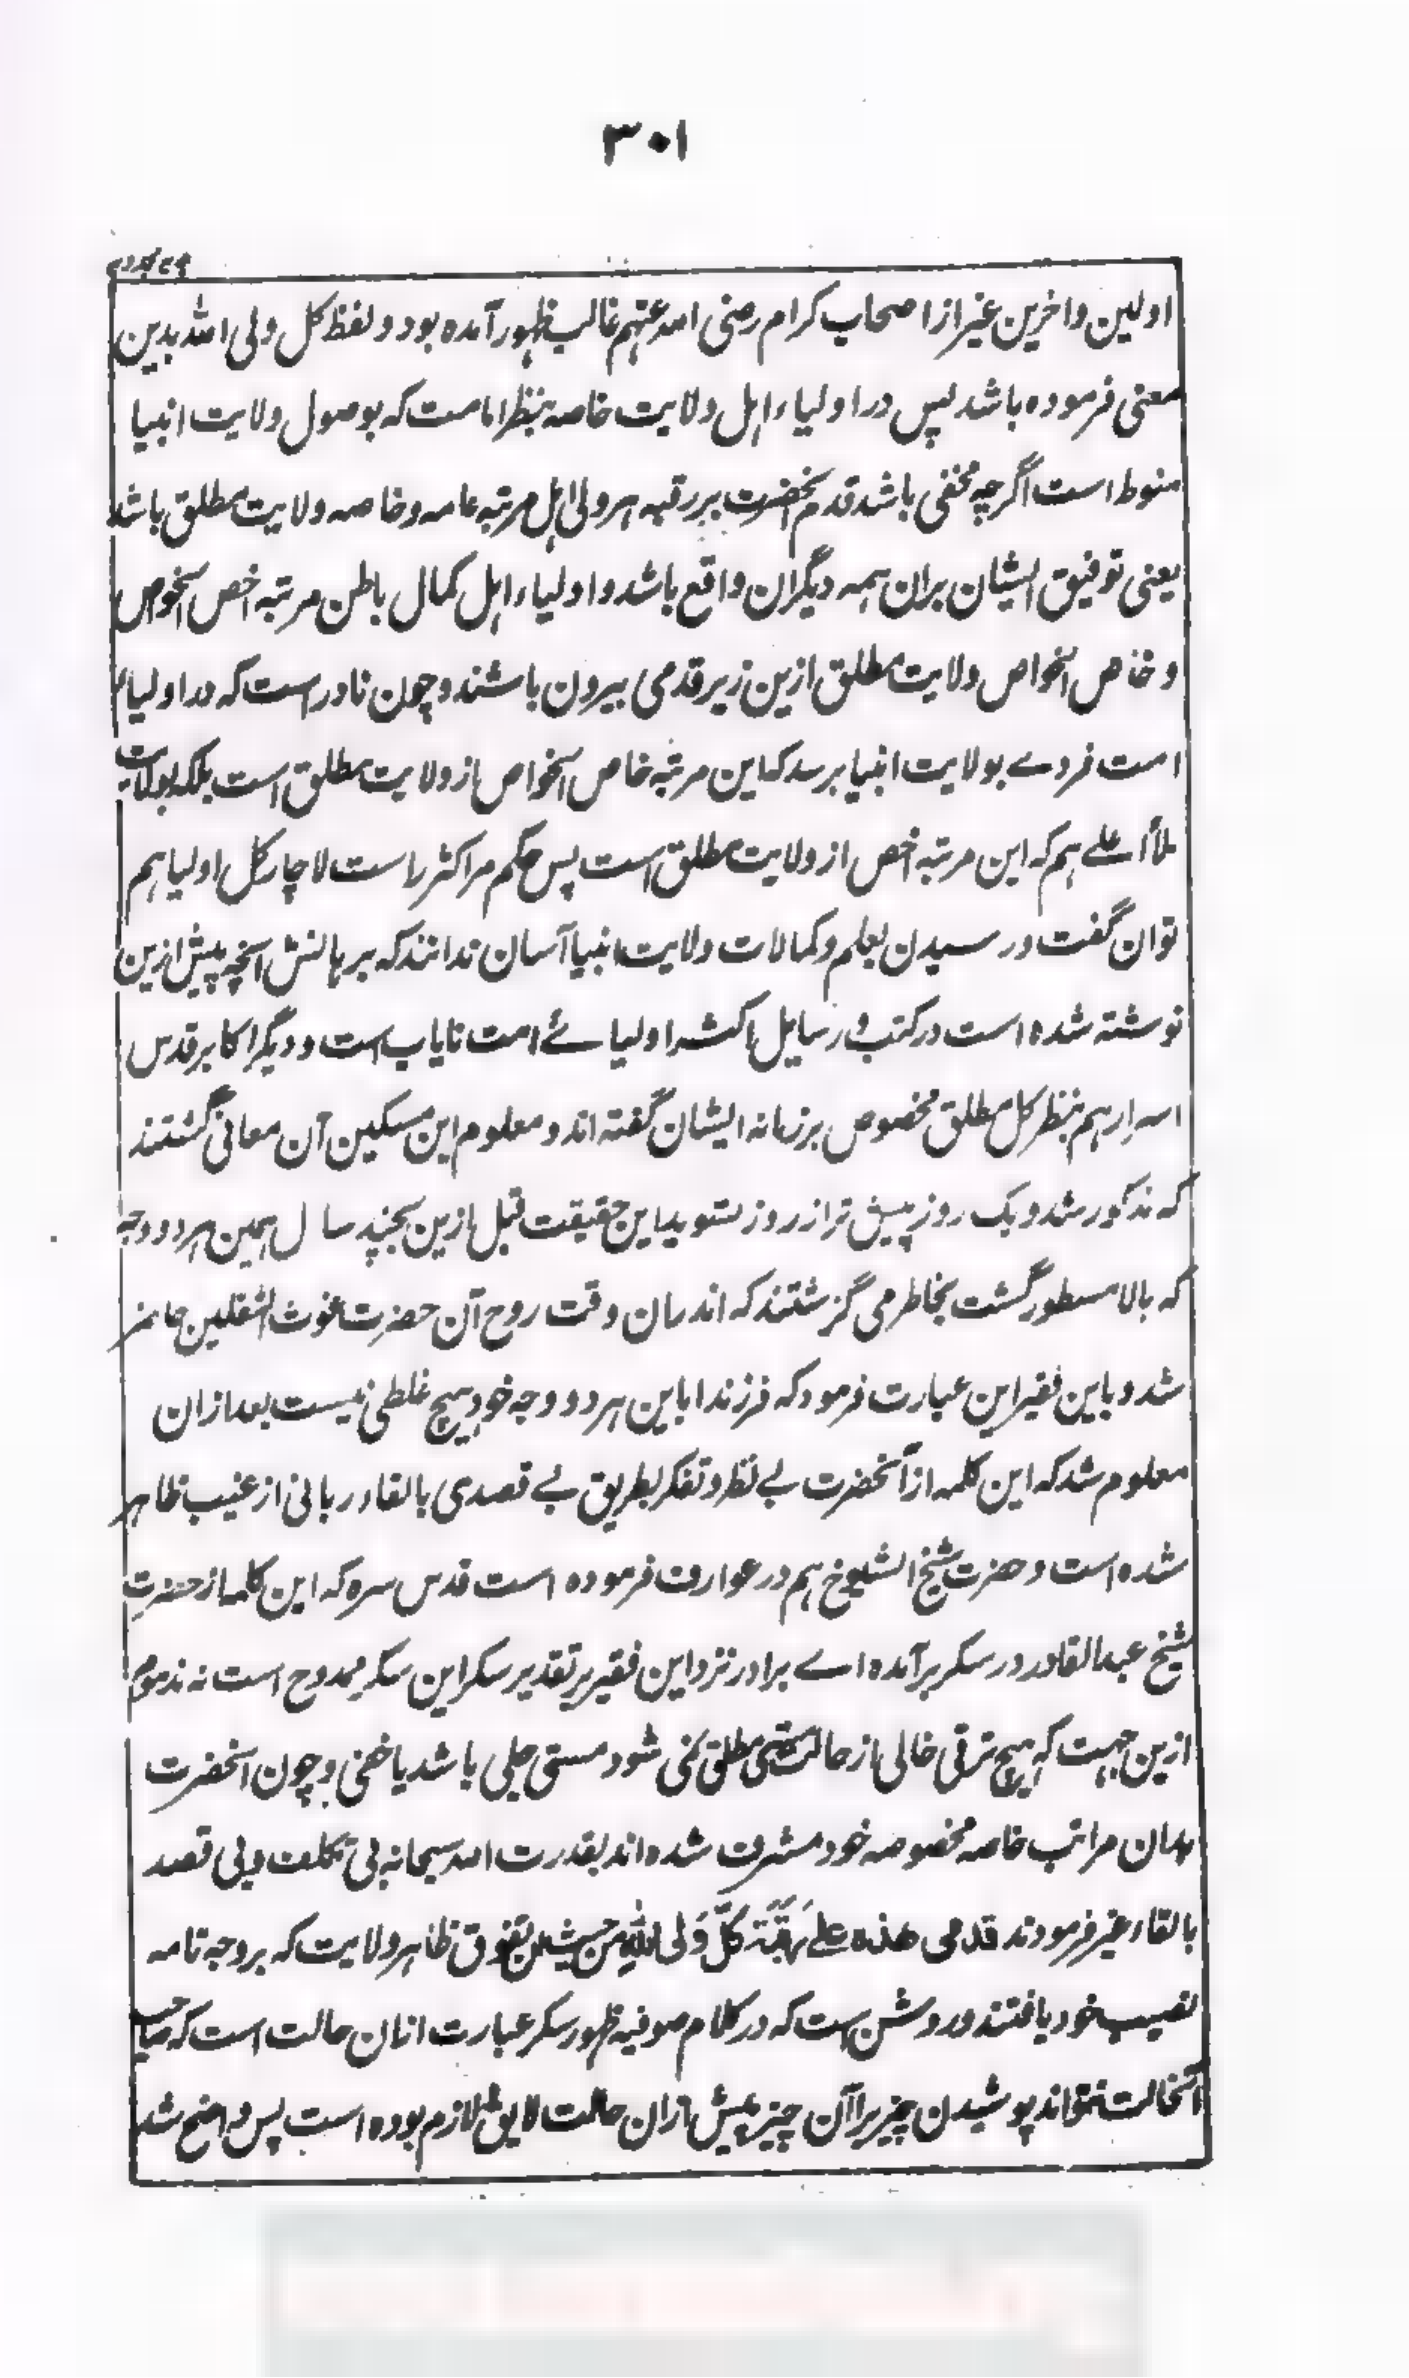 ۳۰۱
اولین واخرین غیر از اصحاب کرام رضی الله عنهم غالب ظهور آمده بود و لفظ کل ولی الله بدین
معنی فرموده باشد پس در اولیاء اہل ولایت خاصه بنظر امامست که بوصول ولایت انبیا
منوط است اگرچه مخفی باشد قدم آنحضرت بر رقبه هر ولی اہل مرتبه عامه و خاصه ولایت مطلق باشد
یعنی توفیق ایشان بران همه دیگران واقع باشد و اولیاء اہل کمال باطن مرتبه اخص الخواص
و خاص الخواص ولایت مطلق ازین زیر قدمی بیرون باشند و چون نادر است که در اولیاء
امت فردے بولایت انبیا برسد که این مرتبه خاص الخواص از ولایت مطلق است بلکه بولایت
ملأ اعلے هم که این مرتبه اخص از ولایت مطلق است پس حکم مر اکثر راست لاچار کل اولیا هم
توان گفت و رسیدن بعلم و کمالات ولایت انبیا آسان ندانند که بر هانش آنچه پیش ازین
نوشته شده است در کتب و رسایل اکثر اولیائے امت نایاب است و دیگر اکابر قدس
اسرارهم بنظر کل مطلق مخصوص بر زمانه ایشان گفته اند و معلوم این مسکین آن معانی گشتند
که مذکور شد و یک روز پیش تر از روز تسوید این حقیقت قبل ازین بچند سال همین هر دو وجه
که بالا مسطور گشت بخاطر می گزشتند که اندران وقت روح آن حضرت غوث الثقلین حاضر
شد و باین فقیر این عبارت فرمود که فرزندا باین هر دو وجه خود هیچ غلطی نیست بعد ازان
معلوم شد که این کلمه از آنحضرت بے نظر و تفکر بطریق بے قصدی بالقاء ربانی از غیب ظاهر
شده است و حضرت شیخ الشیوخ هم در عوارف فرموده است قدس سره که این کلمه از حضرت
شیخ عبدالقادر در سکر برآمده اے برادر نزد این فقیر بر تقدیر سکر این سکر ممدوح است نه مذموم
ازین جهت که هیچ ترقی خالی از حالت مستی مطلق نمی شود مستی جلی باشد یا خفی و چون آنحضرت
بدان مراتب خاصه مخصوصه خود مشرف شده اند بقدرت الله سبحانه بی تکلف و بی قصد
بالقاء غیر فرمودند قدمی هذه علے رقبة كل ولی الله من حیث تفوق ظاهر ولایت که بر وجه تامه
نصیب خود یافتند و روشن است که در کلام صوفیه ظهور سکر عبارت ازان حالت است که صاحب
آنحالت نتواند پوشیدن چیزیرا آن چیز پیش ازان حالت لایق لازم بوده است پس واضح شد